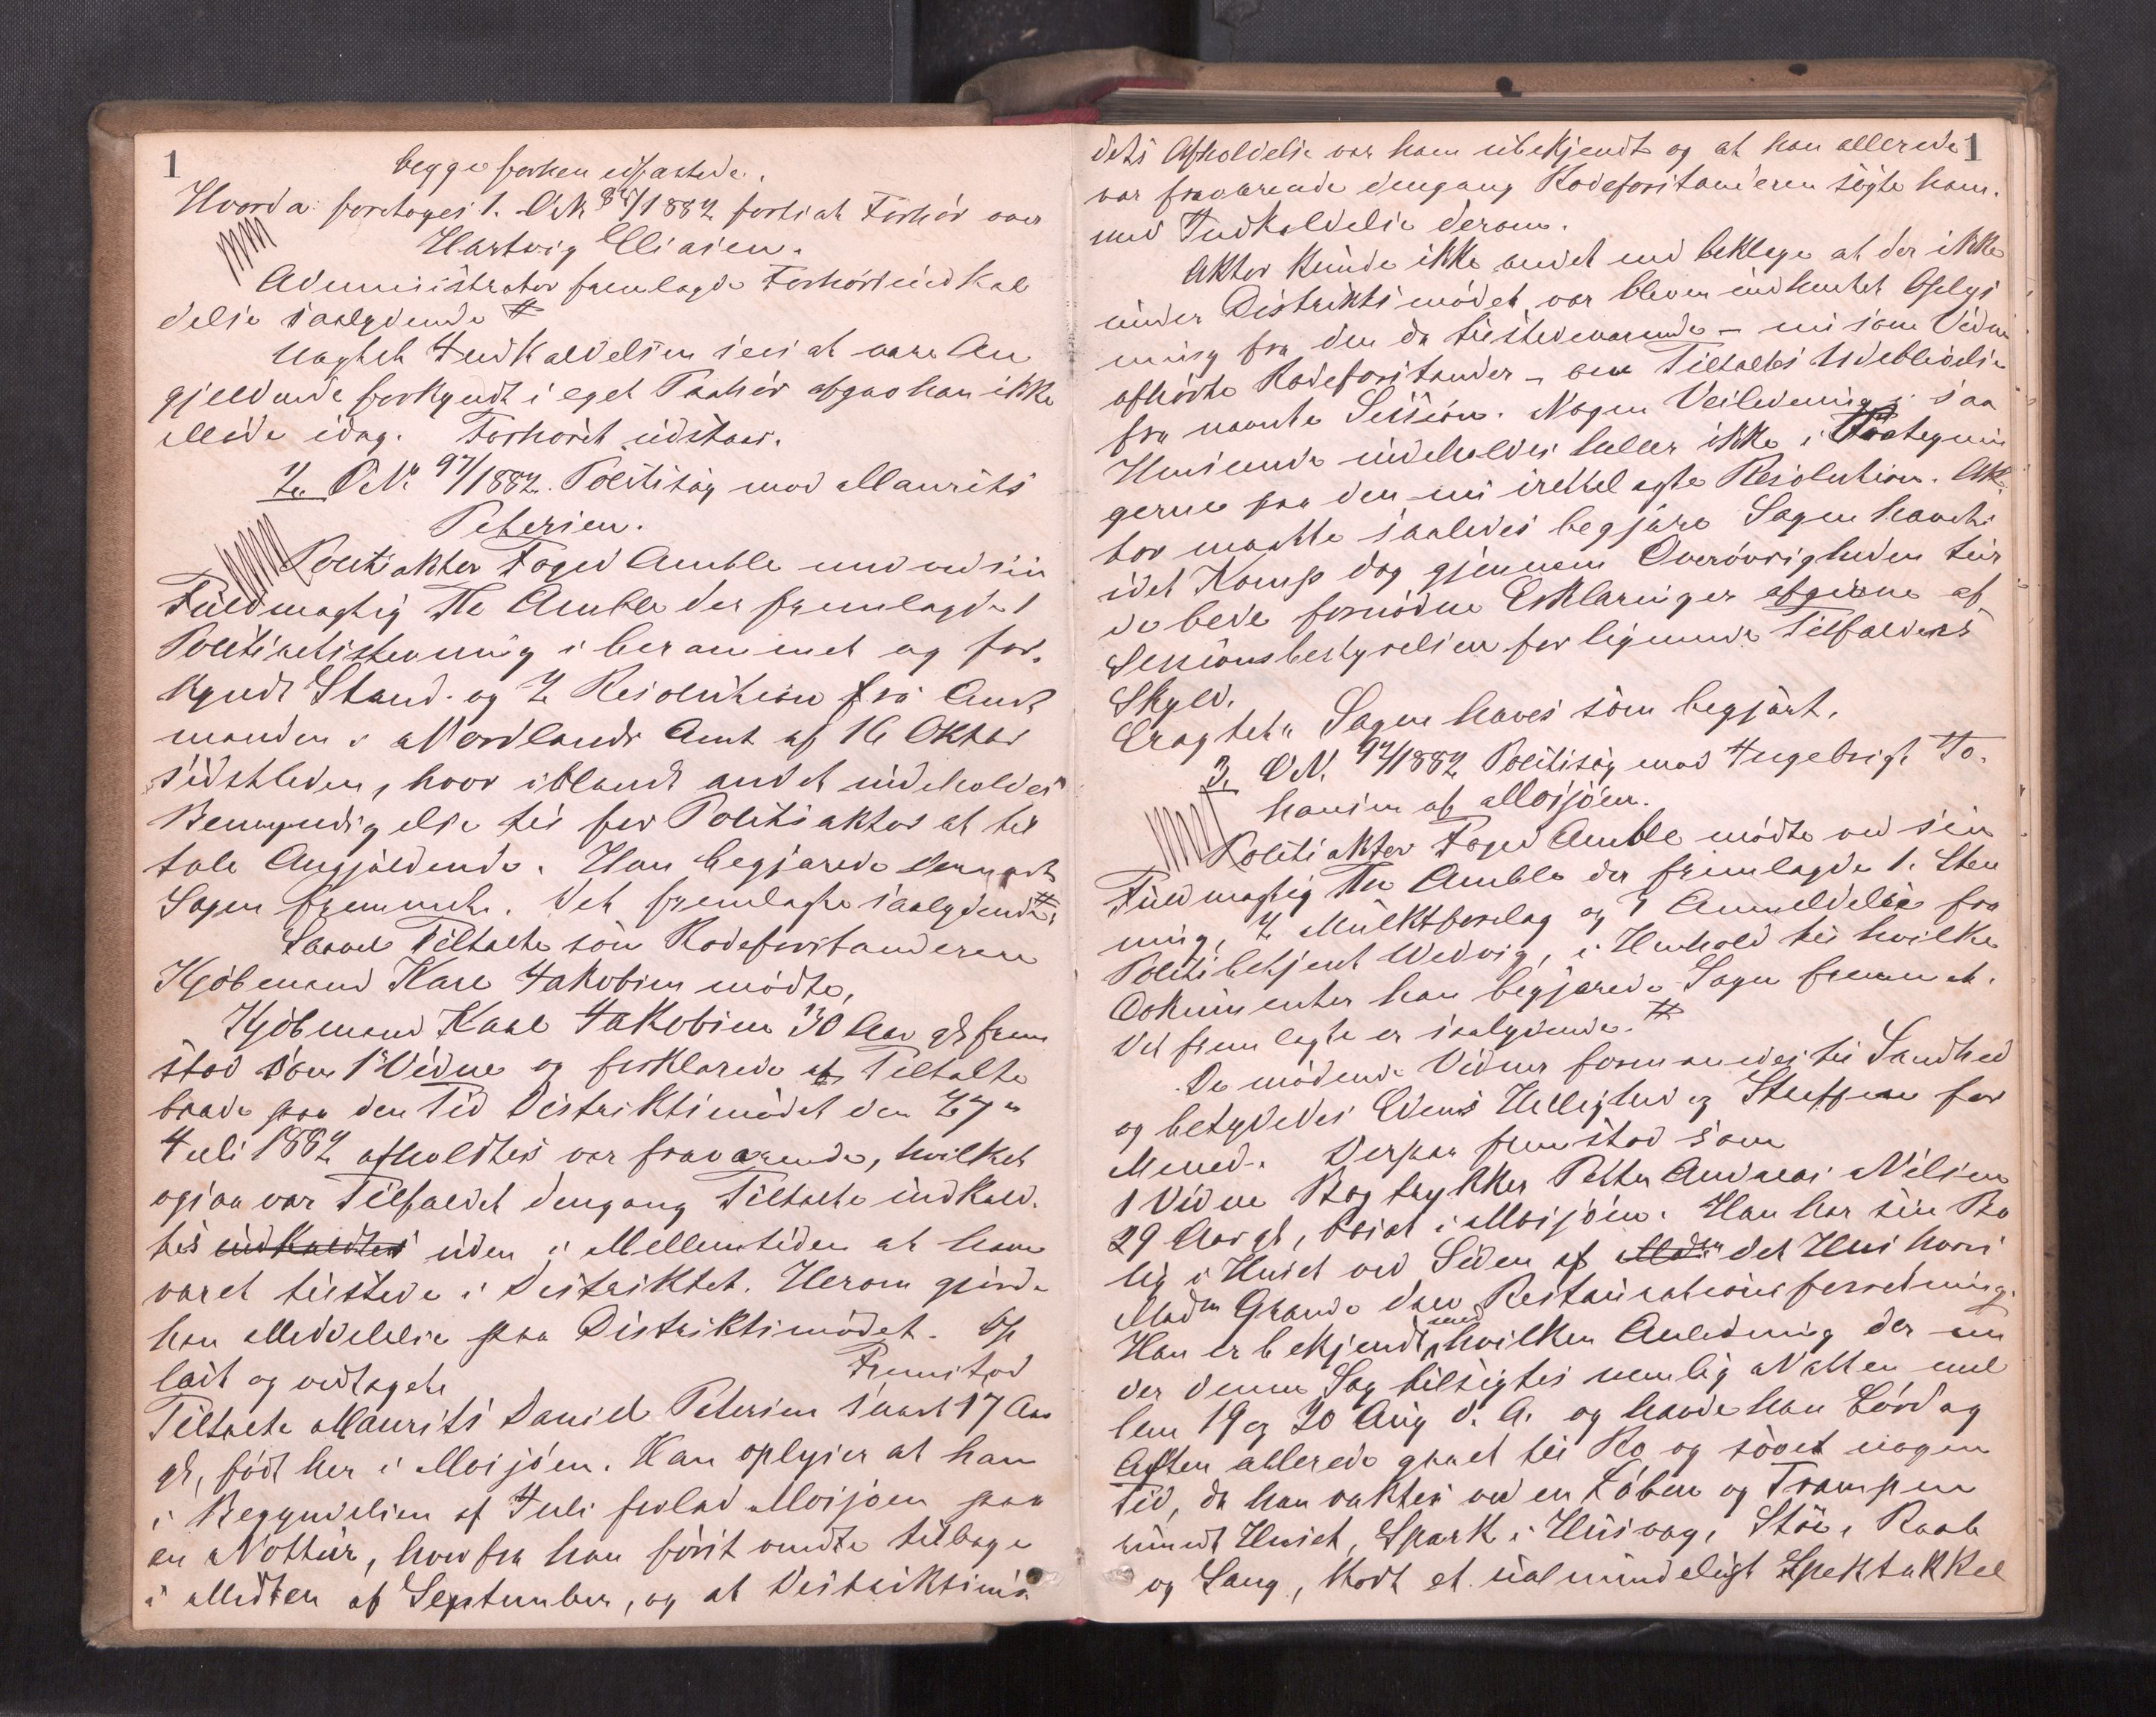 1
begge forhen edfæstede.
Hvorda foretoges 1. D.N. 88/1882 fortsat Forhör over
Hartvig Eliasen.
Administrator fremlagde Forhörsindkal
delse saalydende #
Uagtet Indkaldelsen sees at være An
gjældende forkyndt i eget Paahör afgav han ikke
Möde idag. Forhöret udstaar.
2. D.N. 97/1882. Politisag mod Maurits
Petersen.
Politiaktor Foged Amble med ved sin
Fuldmægtig Th. Amble der fremlagde 1
Politiretsstevning i berammet og for-
kyndt Stand og 2 Resolution fra Amt
manden i Nordlands Amt af 16 Oktbr
sidstleden, hvor iblandt andet indeholdes
Bemyndigelse til for Politiaktor at til
tale Angjældende. Han begjærede dernæst
Sagen fremmet. Det fremlagte saalydende #.
Saavel Tiltalte som Rodeforstanderen
Kjöbmand Karl Jakobsen mödte.
Kjöbmand Karl Jakobsen 30 Aar gl frem
stod som 1ste Vidne og forklarede at Tiltalte
baade paa den Tid Distriktsmödet den 27de
Juli 1882 afholdtes var fraværende, hvilket
ogsaa var Tilfældet dengang Tiltalte indkald-
tes indkaldtes uden i Mellemtiden at have
været tilstede i Distriktet. Herom gjorde
han Meddelelse paa Distriktsmödet. Op
læst og vedtaget. Fremstod
Tiltalte Maurits Daniel Petersen snart 17 Aar
gl, födt her i Mosjöen. Han oplyser at han
i Begyndelsen af Juli forlod Mosjöen paa
en Nottur, hvorfra han förit vendte tilbage
i Midten af September, og at Distriktsmö
1
dets Afholdelse var ham ubekjendt og at han allerede
var fraværende dengang Rodeforstanderen sögte ham
med Indkaldelse derom.
Aktor kunde ikke andet end beklage at der ikke
under Distriktsmödet var bleven indhentet Oplys
ning fra den da tilstedeværende – nu som Vidne
afhörte Rodeforstander – om Tiltaltes Udeblivelse
fra nævnte Session. Nogen Veiledning i saa
Henseende indeholdes heller ikke i Paategnin
gerne paa den nu irettelagte Resolution. Ak
tor maatte saaledes begjære Sagen hævet
idet Komp dog gjennem Overövrigheden tur
de bede fornödne Erklæringer afgivne af
Sessionsbestyrelsen for lignende Tilfælders
Skyld.
Eragtet: Sagen hæves som begjært.
3. D.N. 94/1882 Politisag mod Ingebrigt Jo-
hansen af Mosjöen.
Politiaktor Foged Amble mödte ved sin
Fuldmægtig Th. Amble der fremlagde 1. Stev
ning, 2 Mulktforelag og 3 Anmeldelse fra
Politibetjent Wedvig, i Henhold til hvilke
Dokumenter han begjærede Sagen fremmet.
Det fremlagte er saalydende. #
De mödende Vidner formanedes til Sandhed
og betydedes Edens Hellighed og Straffen for
Mened. Derpaa fremstod som
1 Vidne Bogtrykker Petter Andreas Nilsen
29 Aar gl, bosat i Mosjöen. Han har sin Bo
lig i Huset ved Siden af Mdm det Hus hvori
Madm Grande drev Restaurationsforretning.
Han er bekjendt med hvilken Anledning der un
der denne Sag tilsigtes nemlig Natten mel
lem 19 og 20 Aug d. A. og havde han Lördag
Aften allerede gaaet til Ro og sovet nogen
Tid, da han vaktes ved en Löben og Trampen
rundt Huset, Spark i Husvæg, Stöi, Raab
og Sang, kort et ualmindeligt Spektakkel